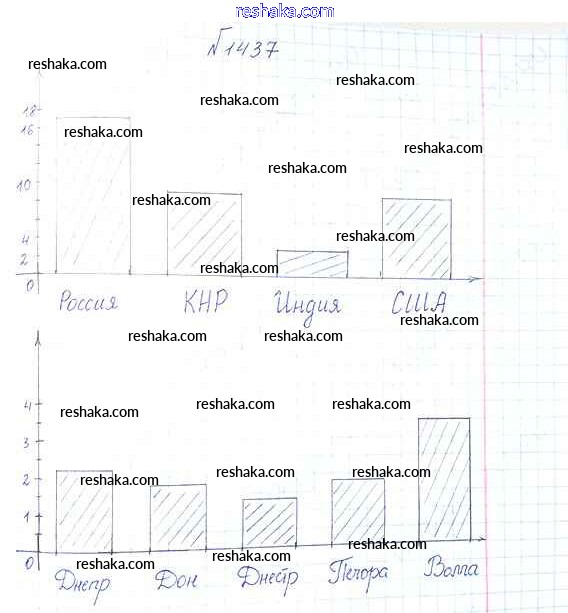 reshaka.com
№1437
reshaka.com
reshaka.com
reshaka.com
18
16
reshaka.com
reshaka.com
reshaka.com
10
reshaka.com
4
reshaka.com
2
reshaka.com
0
Россия КНР Индия США
reshaka.com
reshaka.com reshaka.com
4
reshaka.com reshaka.com reshaka.com
3
2
reshaka.com reshaka.com reshaka.com
1
reshaka.com
0
reshaka.com reshaka.com
Днепр Дон Днестр Печора Волга